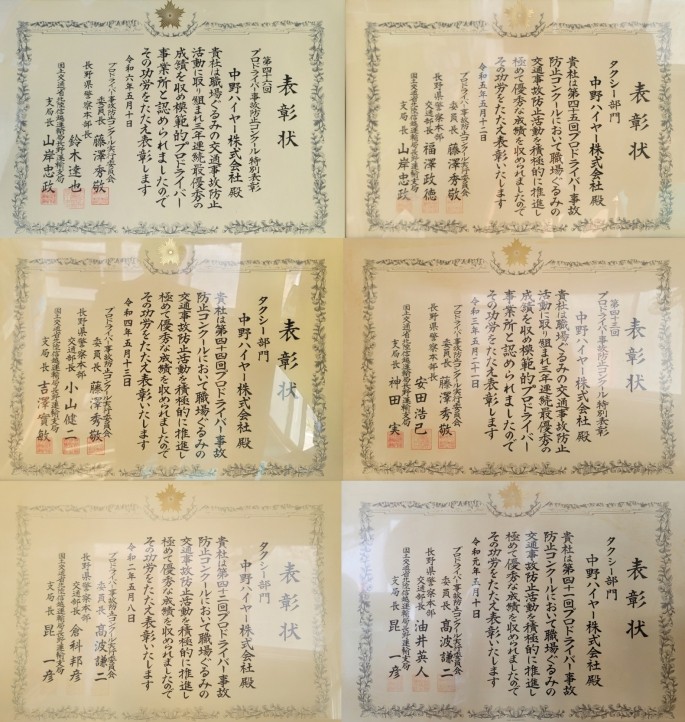 表彰状
第四十六回
プロドライバー事故防止コンクール特別表彰
中野ハイヤー株式会社 殿
貴社は職場ぐるみの交通事故防止
活動に取り組まれ三年連続最優秀の
成績を収め模範的プロドライバー
事業所と認められましたので
その功労をたたえ表彰いたします
令和六年五月十日
プロドライバー事故防止コンクール実行委員会
委員長 藤澤秀敬
長野県警察本部長
鈴木達也
国土交通省北陸信越運輸局長野運輸支局
支局長 山岸忠政
表彰状
タクシー部門
中野ハイヤー株式会社 殿
貴社は第四十五回プロドライバー事故
防止コンクールにおいて職場ぐるみの
交通事故防止活動を積極的に推進し
極めて優秀な成績を収められましたので
その功労をたたえ表彰いたします
令和五年五月十二日
プロドライバー事故防止コンクール実行委員会
委員長 藤澤秀敬
長野県警察本部
交通部長 福澤政徳
国土交通省北陸信越運輸局長野運輸支局
支局長 山岸忠政
表彰状
タクシー部門
中野ハイヤー株式会社 殿
貴社は第四十四回プロドライバー事故
防止コンクールにおいて職場ぐるみの
交通事故防止活動を積極的に推進し
極めて優秀な成績を収められましたので
その功労をたたえ表彰いたします
令和四年五月十三日
プロドライバー事故防止コンクール実行委員会
委員長 藤澤秀敬
長野県警察本部
交通部長 小山健一
国土交通省北陸信越運輸局長野運輸支局
支局長 吉澤實敏
表彰状
第四十三回
プロドライバー事故防止コンクール特別表彰
中野ハイヤー株式会社 殿
貴社は職場ぐるみの交通事故防止
活動に取り組まれ三年連続最優秀の
成績を収め模範的プロドライバー
事業所と認められましたので
その功労をたたえ表彰いたします
令和三年五月二十一日
プロドライバー事故防止コンクール実行委員会
委員長 藤澤秀敬
長野県警察本部長
安田浩己
国土交通省北陸信越運輸局長野運輸支局
支局長 神田 実
表彰状
タクシー部門
中野ハイヤー株式会社 殿
貴社は第四十二回プロドライバー事故
防止コンクールにおいて職場ぐるみの
交通事故防止活動を積極的に推進し
極めて優秀な成績を収められましたので
その功労をたたえ表彰いたします
令和二年五月八日
プロドライバー事故防止コンクール実行委員会
委員長 高波謙二
長野県警察本部
交通部長 倉科邦彦
国土交通省北陸信越運輸局長野運輸支局
支局長 昆 一彦
表彰状
タクシー部門
中野ハイヤー株式会社 殿
貴社は第四十一回プロドライバー事故
防止コンクールにおいて職場ぐるみの
交通事故防止活動を積極的に推進し
極めて優秀な成績を収められましたので
その功労をたたえ表彰いたします
令和元年五月十日
プロドライバー事故防止コンクール実行委員会
委員長 高波謙二
長野県警察本部
交通部長 油井英人
国土交通省北陸信越運輸局長野運輸支局
支局長 昆 一彦